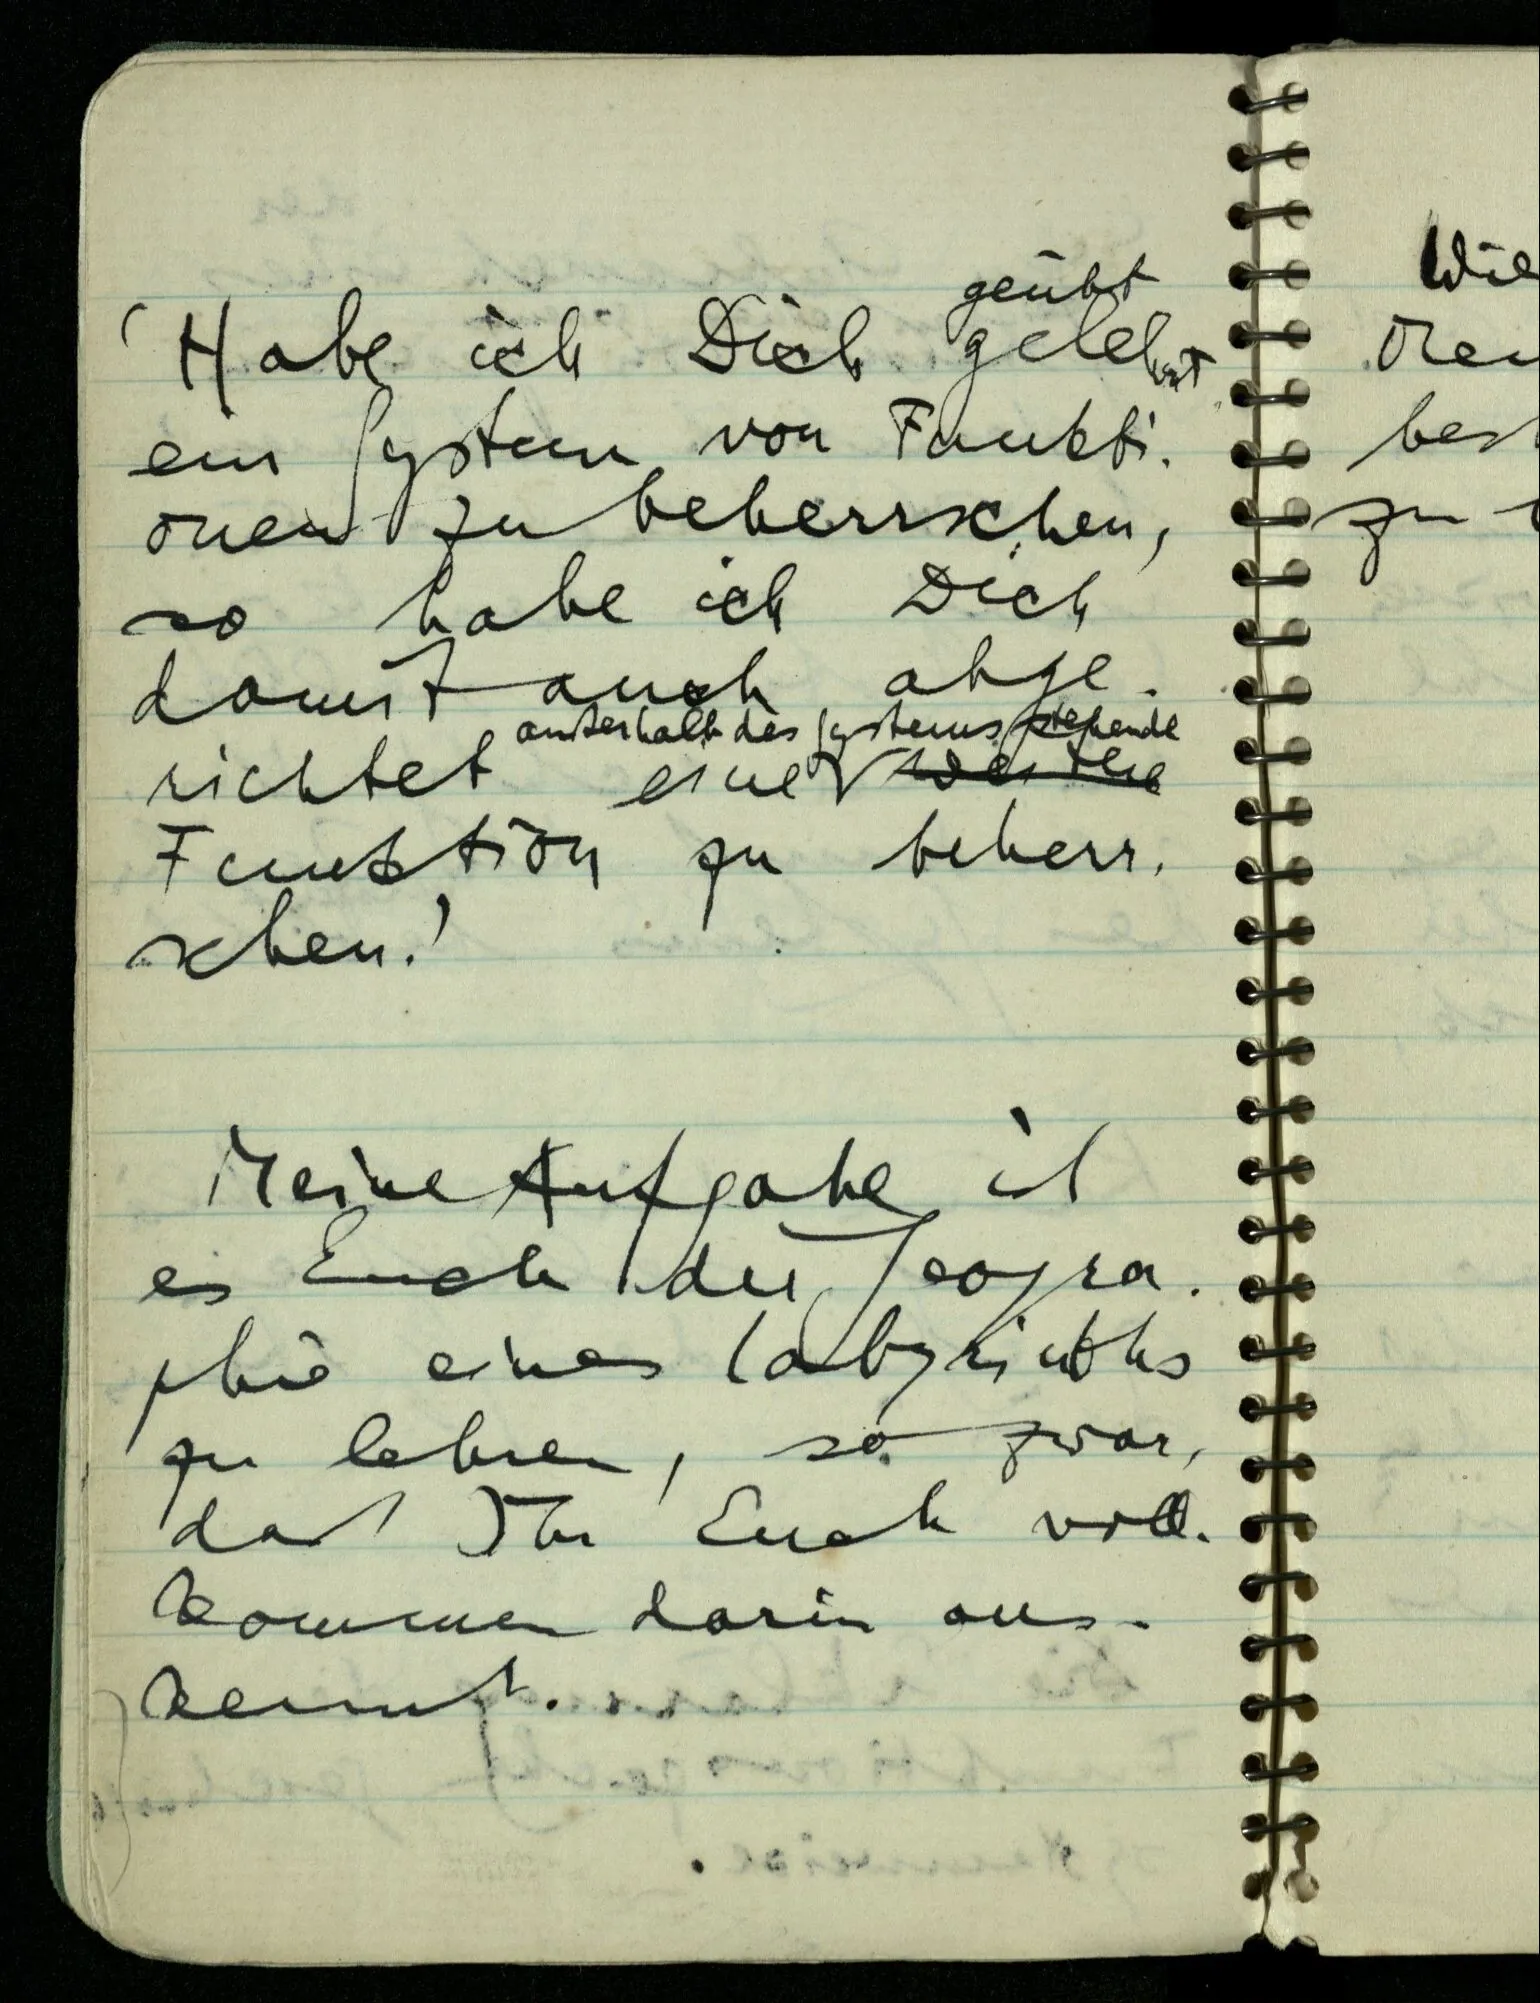 geübt
'Habe ich Dich gelehrt
ein System von Funkti-
onen zu beherrschen,
so habe ich Dich
damit auch abge-
außerhalb des Systems stehende
richtet eine weitere
Funktion zu beherr-
schen.'
Meine Aufgabe ist
es Euch die Geogra-
phie eines Labyrinths
zu lehren, so zwar,
daß Ihr Euch voll-
kommen darin aus-
kennt.
Wie
zu